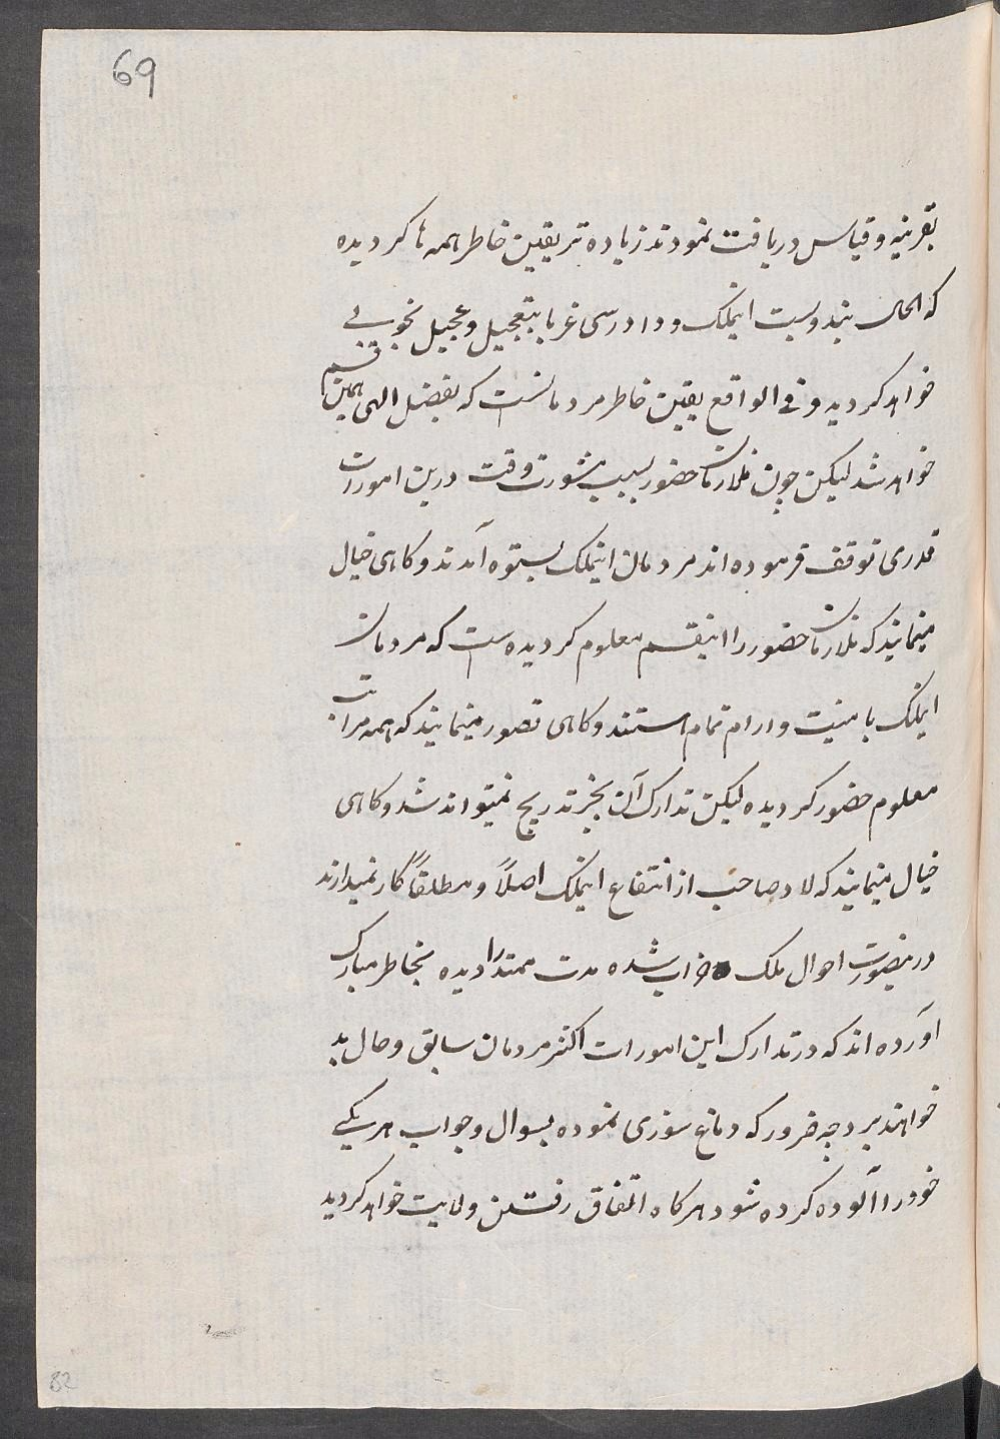 69
بقرینه و قیاس دریافت نمودند زیاده تر یقین خاطر همه ها کردیده
که الحال بندوبست اینملک و دادرسی غربا بتعجیل و عجیل بخوبی
خواهد کردید و فی الواقع یقین خاطر مردمانست که بفضل الهی همین قسم
خواهد شد لیکن چون ملازمان حضور بسبب مشورت وقت درین امورات
قدری توقف فرموده اند مردمان اینملک بستوه آمدند و کاهی خیال
مینمایند که ملازمان حضور را اینقسم معلوم کردیده ست که مردمان
اینملک بامنیت و ارام تمام هستند و کاهی تصور مینمایند که همه مراتب
معلوم حضور کردیده لیکن تدارک آن بجز تدریج نمیتواند شد و کاهی
خیال مینمایند که لارد صاحب از انتفاع اینملک اصلاً و مطلقاً کار نمیدارند
درینصورت احوال ملک خراب شده مدت ممتد را دیده بخاطر مبارک
آورده اند که در تدارک این امورات اکثر مردمان سابق و حال بد
خواهند برد چه ضرور که دماغ سوزی نموده بسوال و جواب هر یکی
خود را آلوده کرده شود هرکاه اتفاق رفتن ولایت خواهد کردید
82